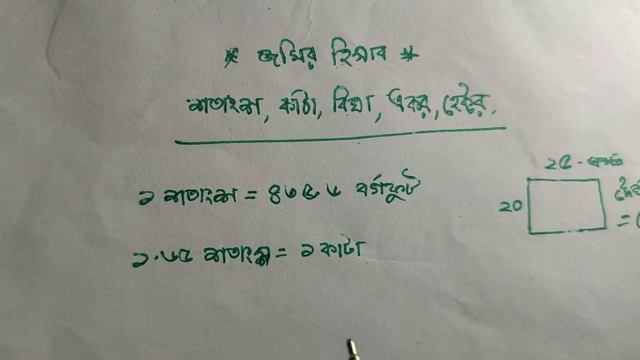 * জমির হিসাব *
শতাংশ, কাঠা, বিঘা, একর, হেক্টর.
১ শতাংশ = ৪৩৫.৬ বর্গফুট
২৫
২০
১.৬৫ শতাংশ = ১ কাটা